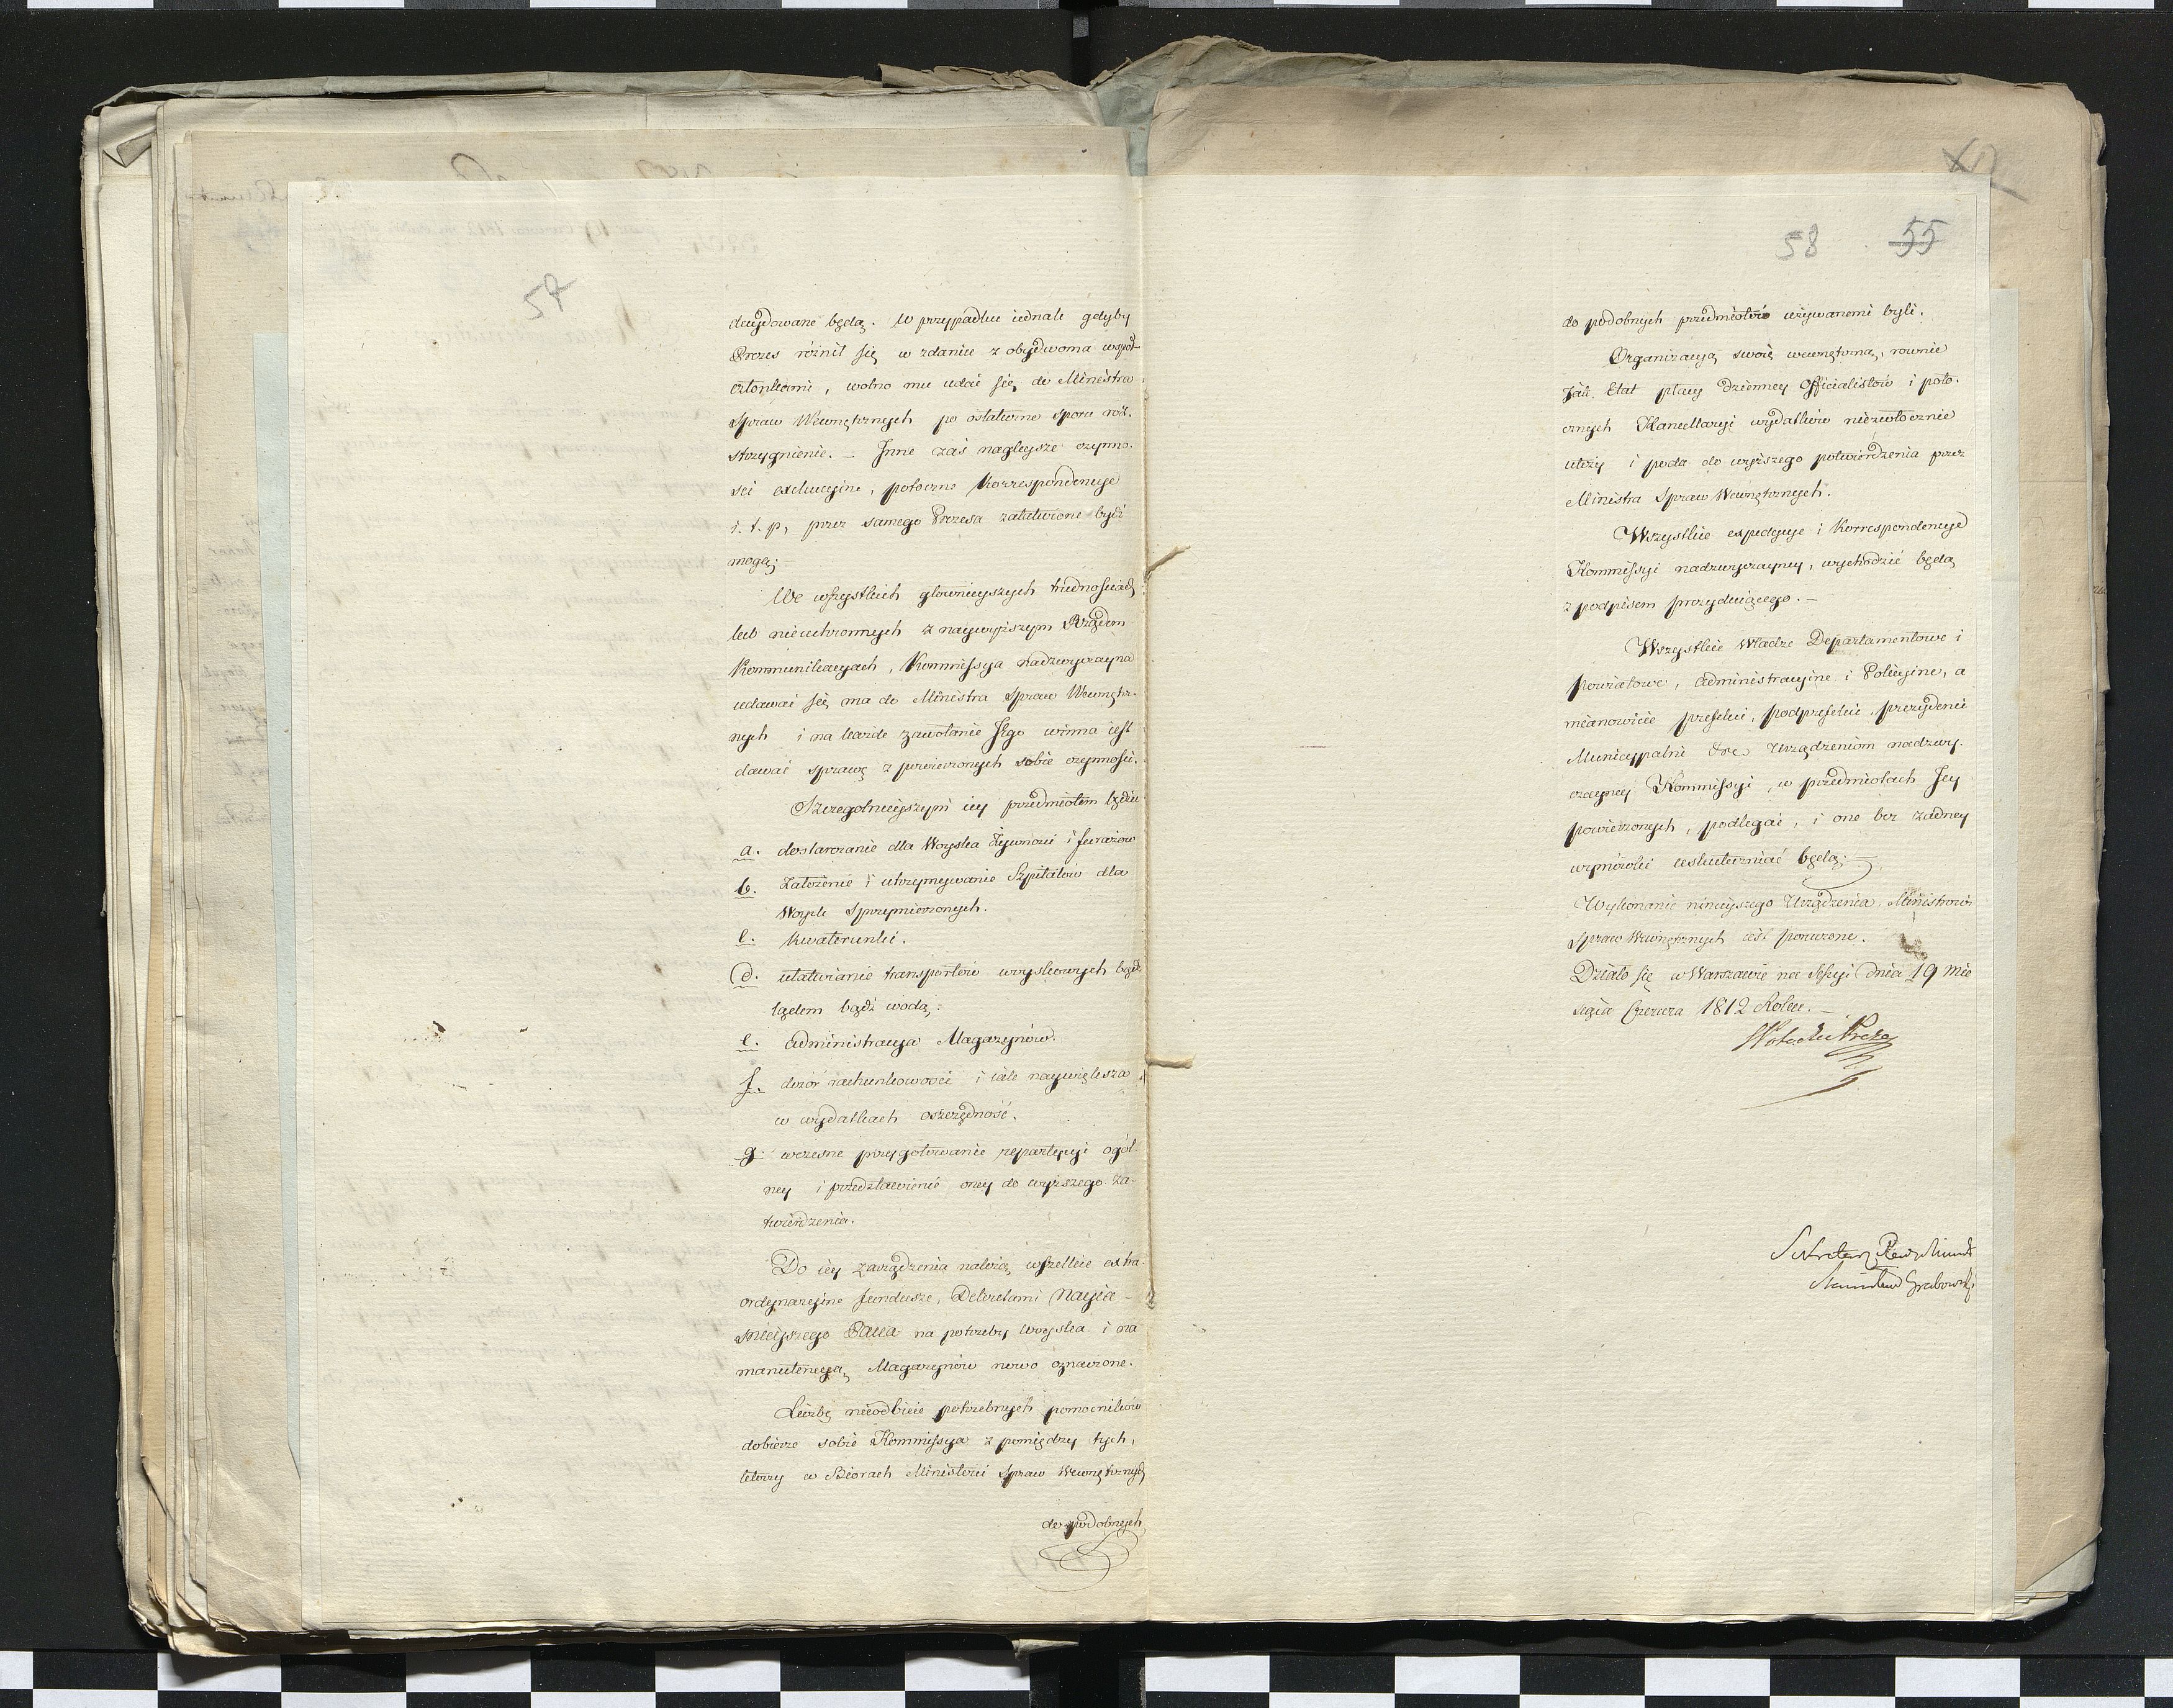 57
decydowane będą. W przypadku iednak gdyby
Prezes różnił się w zdaniu z obydwoma współ-
członkami, wolno mu udać się do Ministra
Spraw Wewnętrznych po ostateczne sporu roz-
strzygnienie. – Inne zaś nagleysze czynno-
ści exekucyine, potoczne Korrespondencye
i. t. p, przez samego Prezesa załatwione bydź
mogą; –
We wszystkich głownieyszych trudnościach
lub nieuchronnych z naywyższym Rządem
Kommunikacyach, Kommissya nadzwyczayna
udawać się ma do Ministra Spraw Wewnętrz-
nych i na każde zawołanie Jego winna iest
dawać sprawę z powierzonych sobie czynności.
Szczegolnieyszym iey przedmiotem będzie
a. dostarczanie dla Woyska żywności i furażów
b. Założenie i utrzymywanie Szpitalów dla
Woysk Sprzymierzonych.
c. Kwaterunki.
d. ułatwianie transportów woyskowych bądź
lądem bądź wodą.
e. administracya Magazynów.
f. dozór rachunkowości i iak naywiększa
w wydatkach oszczędność.
g. wczesne przygotowanie repartycyi ogól-
ney i przedstawienie oney do wyższego za-
twierdzenia.
Do iey zarządzenia należą wszelkie extra-
ordynaryine fundusze, Dekretami Nayia-
śnieyszego Pana na potrzeby woyska i na
manutencyą Magazynów nowo oznaczone.
Liczbę nieodbicie potrzebnych pomocników
dobierze sobie Kommissya z pomiędzy tych,
którzy w Biórach Ministerii Spraw Wewnętrznych
do podobnych
58 55
do podobnych przedmiotów używanemi byli.
Organizacyą swoię wewnętrzną, rownie
jak Etat płacy dzienney Officialistów i poto-
cznych Kancellaryi wydatków niezwłocznie
ułoży i poda do wyższego potwierdzenia przez
Ministra Spraw Wewnętrznych.
Wszystkie expedycye i Korrespondencye
Kommissyi nadzwyczayney, wychodzić będą
z podpisem prezyduiącego. –
Wszystkie Władze Departamentowe i
Powiatowe, administracyine i Policyine, a
mianowicie prefekci, podprefekci, prezydenci
Municypalni &c. Urządzeniom nadzwy-
czayney Kommissyi, w przedmiotach Jey
powierzonych, podlegać, i one bez żadney
wymówki uskuteczniać będą; –
Wykonanie ninieyszego Urządzenia Ministrowi
Spraw Wewnętrznych iest poruczone.
Działo się w Warszawie na Sessyi dnia 19 mie
siąca Czerwca 1812 Roku. –
Potocki Preze
Sekretarz Rady Ministr
Stanisław Grabowski